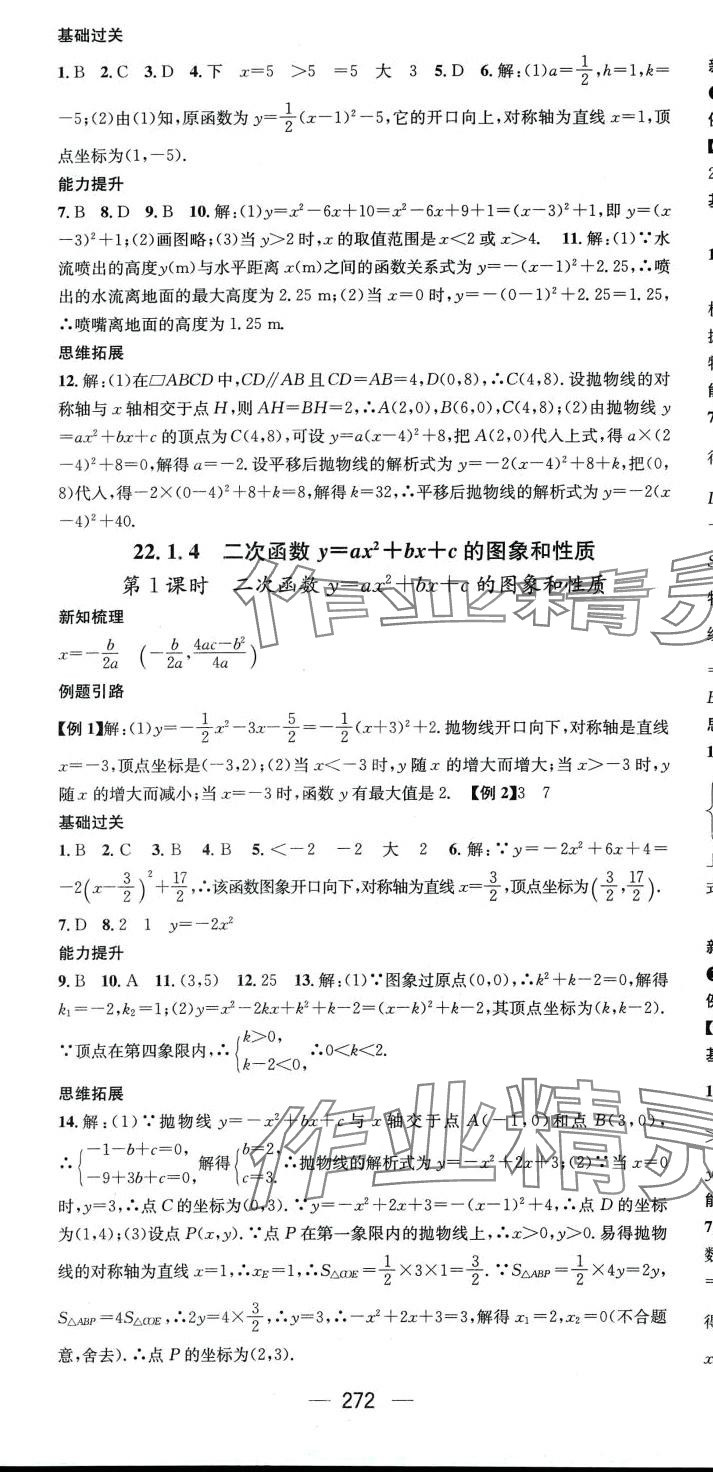 基础过关
1.B 2.C 3.D 4.下 x=5 >5 =5 大 3 5.D 6.解:(1)a=1/2,h=1,k=
-5;(2)由(1)知,原函数为 y=1/2(x-1)²-5,它的开口向上,对称轴为直线 x=1,顶
点坐标为(1,-5).
能力提升
7.B 8.D 9.B 10.解:(1)y=x²-6x+10=x²-6x+9+1=(x-3)²+1,即 y=(x
-3)²+1;(2)画图略;(3)当 y>2 时,x 的取值范围是 x<2 或 x>4. 11.解:(1)∵水
流喷出的高度y(m)与水平距离 x(m)之间的函数关系式为 y=-(x-1)²+2.25,∴喷
出的水流离地面的最大高度为 2.25 m;(2)当 x=0 时,y=-(0-1)²+2.25=1.25,
∴喷嘴离地面的高度为 1.25 m.
思维拓展
12.解:(1)在▱ABCD 中,CD∥AB 且 CD=AB=4,D(0,8),∴C(4,8).设抛物线的对
称轴与 x 轴相交于点 H,则 AH=BH=2,∴A(2,0),B(6,0),C(4,8);(2)由抛物线 y
=ax²+bx+c 的顶点为 C(4,8),可设 y=a(x-4)²+8,把 A(2,0)代入上式,得 a×(2
-4)²+8=0,解得 a=-2.设平移后抛物线的解析式为 y=-2(x-4)²+8+k,把(0,
8)代入,得-2×(0-4)²+8+k=8,解得 k=32,∴平移后抛物线的解析式为 y=-2(x
-4)²+40.
22.1.4 二次函数 y=ax²+bx+c 的图象和性质
第 1 课时 二次函数 y=ax²+bx+c 的图象和性质
新知梳理
x=-b/2a (-b/2a,(4ac-b²)/4a)
例题引路
【例 1】解:(1)y=-1/2x²-3x-5/2=-1/2(x+3)²+2.抛物线开口向下,对称轴是直线
x=-3,顶点坐标是(-3,2);(2)当 x<-3 时,y 随 x 的增大而增大;当 x>-3 时,y
随 x 的增大而减小;当 x=-3 时,函数 y 有最大值是 2. 【例 2】3 7
基础过关
1.B 2.C 3.B 4.B 5.<-2 -2 大 2 6.解:∵y=-2x²+6x+4=
-2(x-3/2)²+17/2,∴该函数图象开口向下,对称轴为直线 x=3/2,顶点坐标为(3/2,17/2).
7.D 8.2 1 y=-2x²
能力提升
9.B 10.A 11.(3,5) 12.25 13.解:(1)∵图象过原点(0,0),∴k²+k-2=0,解得
k₁=-2,k₂=1;(2)y=x²-2kx+k²+k-2=(x-k)²+k-2,其顶点坐标为(k,k-2).
∵顶点在第四象限内,∴{k>0, k-2<0, ∴0<k<2.
思维拓展
14.解:(1)∵抛物线 y=-x²+bx+c 与 x 轴交于点 A(-1,0)和点 B(3,0),
∴{-1-b+c=0, -9+3b+c=0, 解得{b=2, c=3. ∴抛物线的解析式为 y=-x²+2x+3;(2)∵当 x=0
时,y=3,∴点 C 的坐标为(0,3).∵y=-x²+2x+3=-(x-1)²+4,∴点 D 的坐标
为(1,4);(3)设点 P(x,y).∵点 P 在第一象限内的抛物线上,∴x>0,y>0.易得抛物
线的对称轴为直线 x=1,∴x_E=1,∴S△COE=1/2×3×1=3/2.∵S△ABP=1/2×4y=2y,
S△ABP=4S△COE,∴2y=4×3/2,∴y=3,∴-x²+2x+3=3,解得 x₁=2,x₂=0(不合题
意,舍去).∴点 P 的坐标为(2,3).
— 272 —
作业精灵
作业精灵